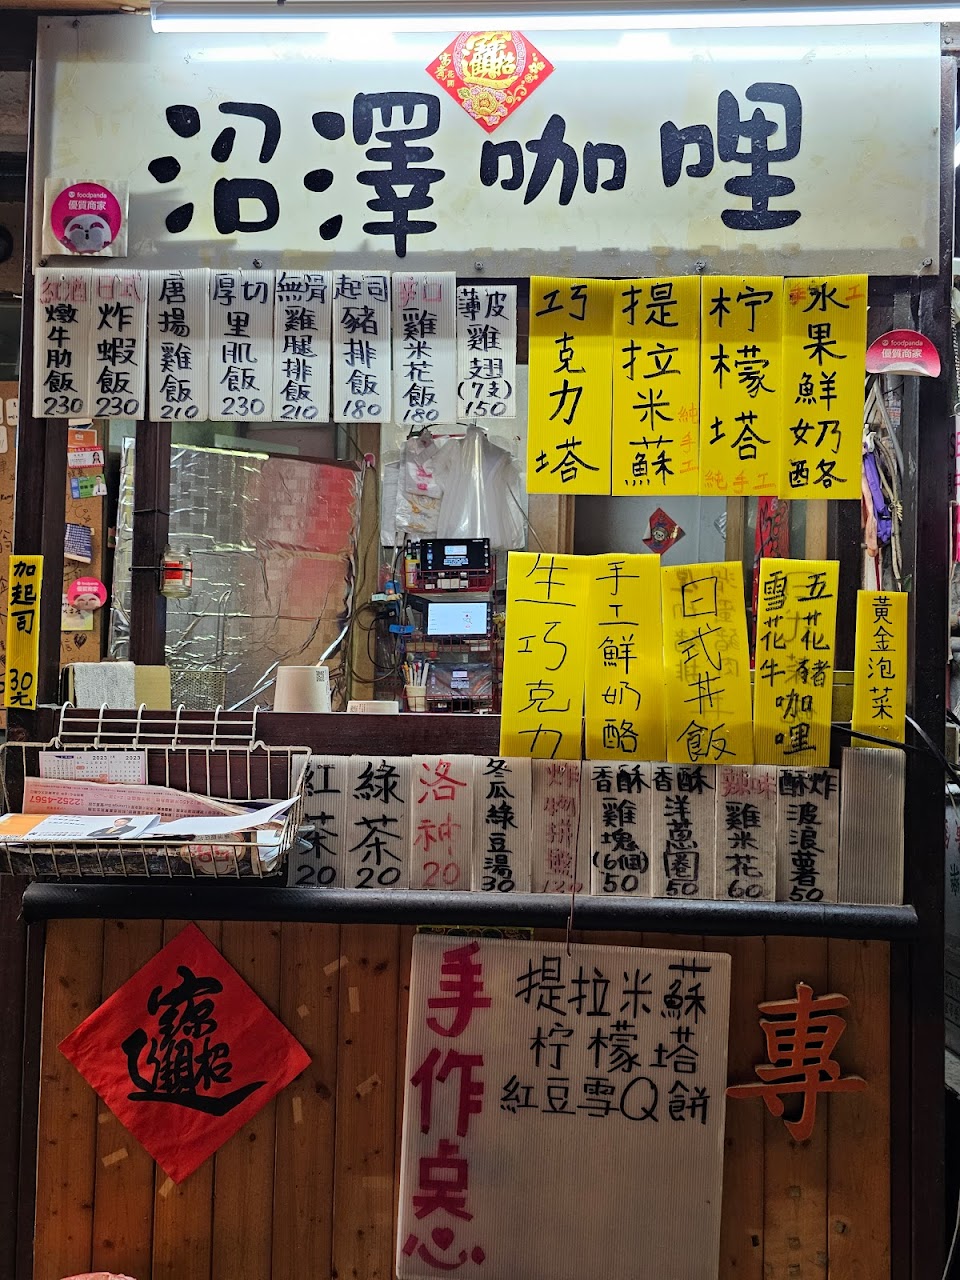 招財進寶
花開
富貴
沼澤咖哩
foodpanda
優質商家
紅酒燉牛肋飯230
日式炸蝦飯230
唐揚雞飯210
厚切里肌飯230
無骨雞腿排飯210
起司豬排飯180
雞米花飯180
薄皮雞翅(7支)150
巧克力塔
提拉米蘇
純手工
柠檬塔
純手工
手工
水果鮮奶酪
foodpanda
優質商家
加起司 30元
生巧克力
手工鮮奶酪
日式丼飯
五花豬咖哩
雪花牛
黃金泡菜
2023
2023
2252-4567
紅茶20
綠茶20
洛神20
冬瓜綠豆湯30
炸物拼盤120
香酥雞塊(6個)50
香酥洋蔥圈50
辣味雞米花60
酥炸波浪薯50
招財進寶
手作点心
提拉米蘇
柠檬塔
紅豆雪Q餅
專